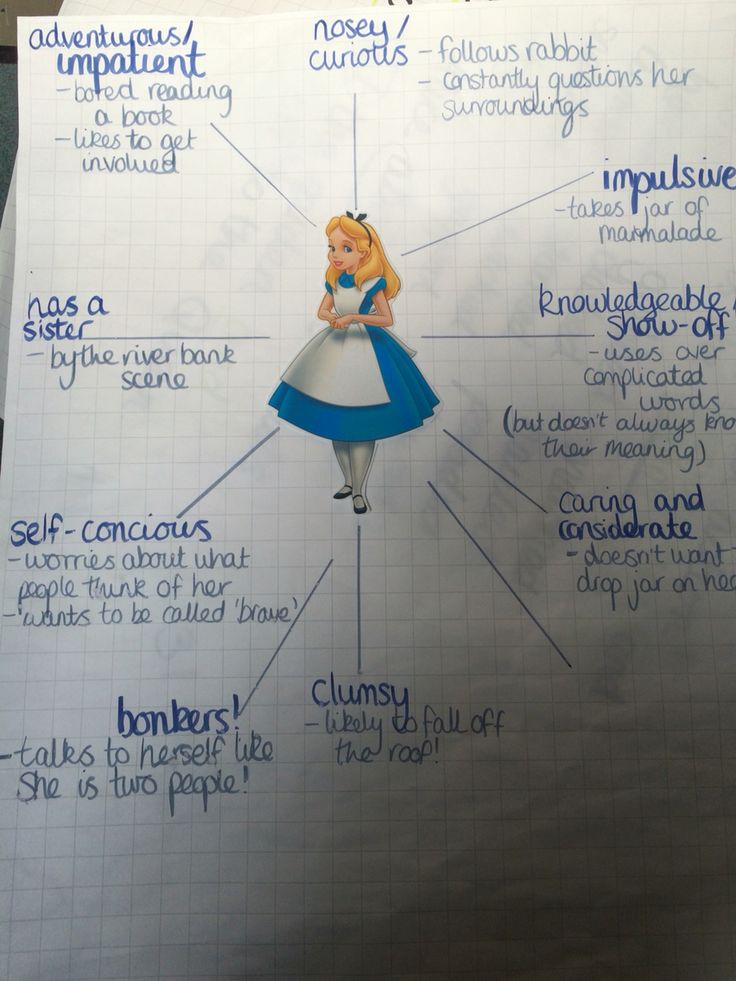 adventurous/
impatient
- bored reading
a book
- likes to get
involved
nosey/
curious
- follows rabbit
- constantly questions her
surroundings
impulsive
- takes jar of
marmalade
has a
sister
- by the river bank
scene
knowledgeable/
show-off
- uses over
complicated
words
(but doesn't always kno
their meaning)
self-concious
- worries about what
people think of her
- 'wants to be called 'brave'
caring and
considerate
- doesn't want
drop jar on hea
bonkers!
- talks to herself like
she is two people!
clumsy
- likely to fall off
the roof!